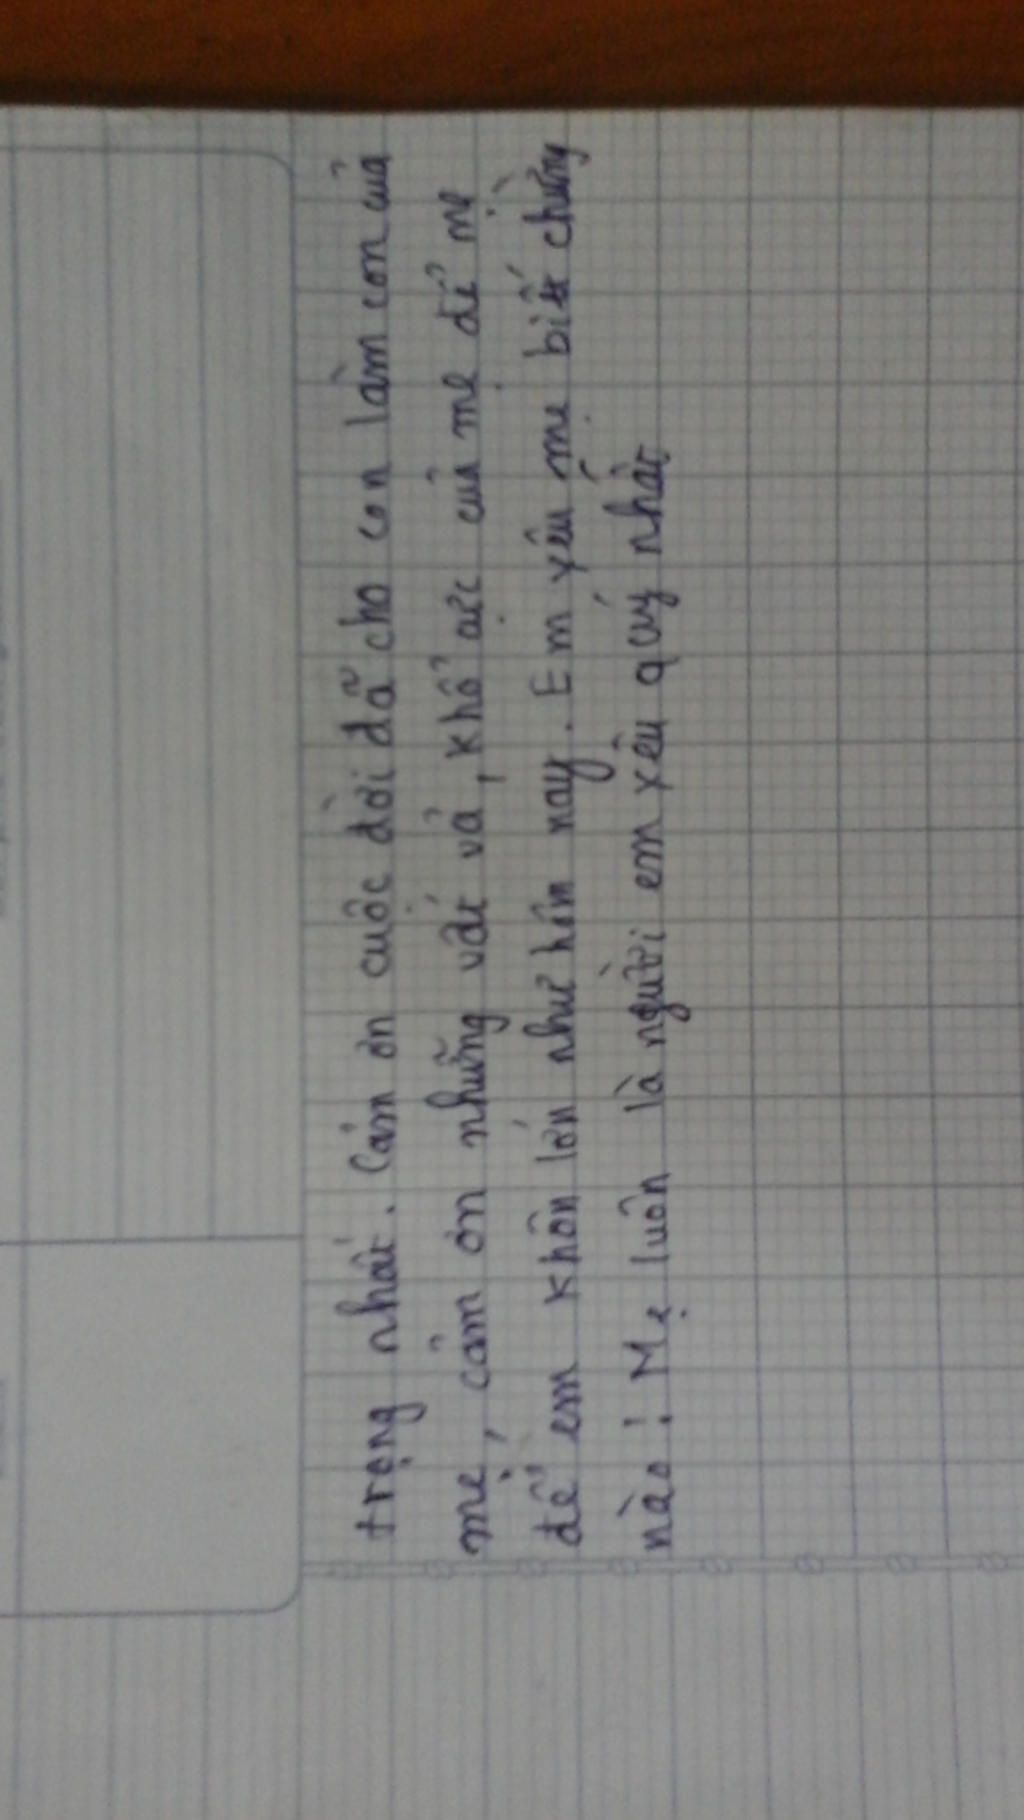 trọng nhất. Cảm ơn cuộc đời đã cho con làm con của
mẹ, cảm ơn những vất vả, khổ cực của mẹ để mẹ
để em khôn lớn như hôm nay. Em yêu mẹ biết chừng
nào! Mẹ luôn là người em yêu quý nhất